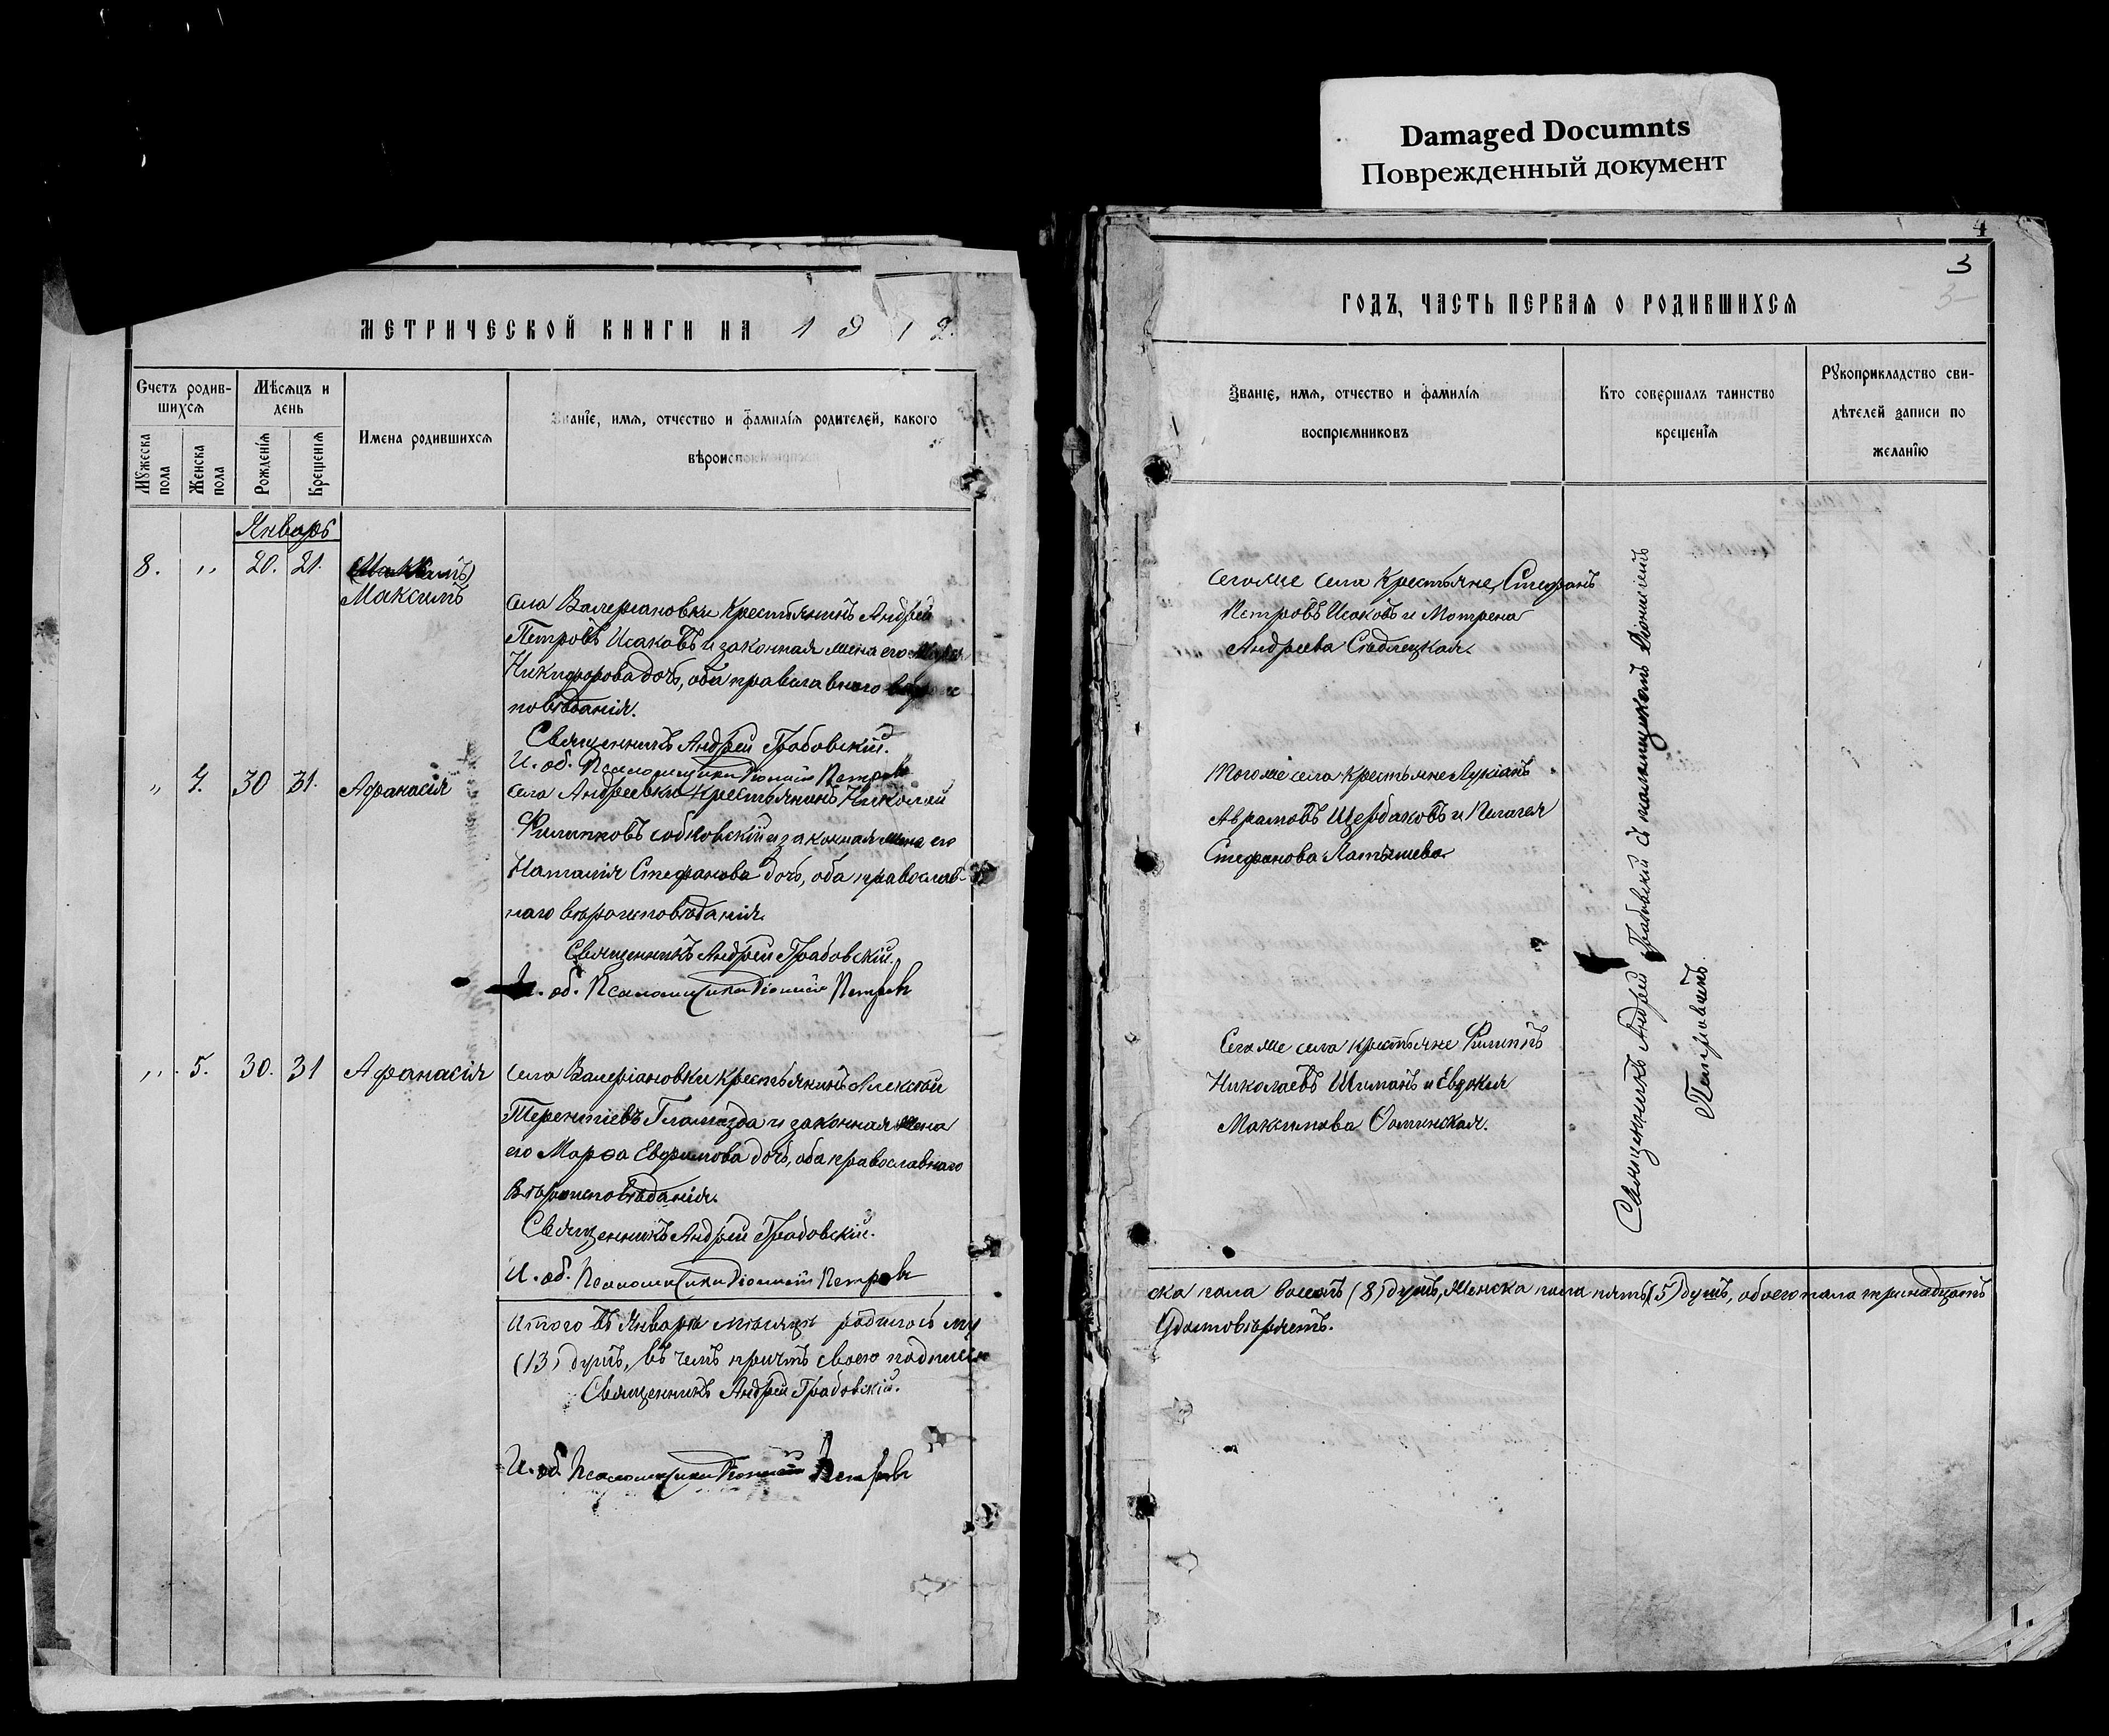 Damaged Documnts
Поврежденный документ
4
3
3
МЕТРИЧЕСКОЙ КНИГИ НА 1912
ГОДЪ, ЧАСТЬ ПЕРВАЯ О РОДИВШИХСЯ
Счетъ родив-
шихся
Мужеска пола
Женска пола
Мѣсяцъ и
день
Рожденія
Крещенія
Имена родившихся
Званіе, имя, отчество и фамилія родителей, какого
вѣроисп
Званіе, имя, отчество и фамилія
воспріемниковъ
Кто совершалъ таинство
крещенія
Рукоприкладство сви-
дѣтелей записи по
желанію
Январь
8. ,, 20. 21.
Максимъ
села Валеріановки крестьянинъ Андрей
Петровъ Исаковъ и законная жена его
Никифорова дочь, оба православнаго вѣроис
повѣданія.
Священникъ Андрей Грабовскій.
И. об. Псаломщика Діонисій Петровъ
сегоже села крестьяне, Стефанъ
Петровъ Исаковъ и Мотрена
Андреева Сѣдлецкая.
,, 4. 30 31. Афанасія
села Андреевки крестьянинъ Николай
Филиповъ Собковскій и законная жена его
Наталія Стефанова дочь, оба православ-
наго вѣроисповѣданія.
Священникъ Андрей Грабовскій.
И. об. Псаломщика Діонисій Петровъ
тогоже села крестьяне Лукіанъ
Аврамовъ Щербаковъ и Пелагея
Стефанова Латышева
,, 5. 30. 31 Афанасія
села Валеріановки крестьянинъ Алексѣй
Терентіевъ Гламазда и законная жена
его Марѳа Евфимова дочь, оба православнаго
Вѣроисповѣданія.
Священникъ Андрей Грабовскій.
И. об. Псаломщика Діонисій Петровъ
Сегоже села крестьяне Филипъ
Николаевъ Шиманъ и Евдокія
Максимова Осминская.
Священникъ Андрей Грабовскій съ псаломщикомъ Діонисіемъ
Петровымъ.
Итого въ Январѣ мѣсяцѣ родилось му
ска пола восемь (8) душъ, женска пола пять (5) душъ, обоего пола тринадцать
(13) душъ, въ чемъ причтъ своею подписью
Удостовѣряетъ.
Священникъ Андрей Грабовскій.
И. об. Псаломщика Діонисій Петровъ